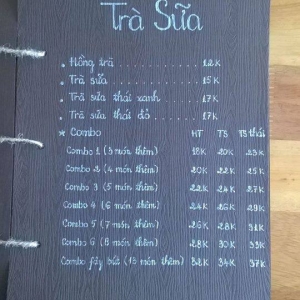 Trà Sữa
. Hồng trà ............ 12K
. Trà sữa ............ 15K
. Trà sữa thái xanh .... 17K
. Trà sữa thái đỏ ...... 17K
★ Combo HT TS TS thái
Combo 1 (3 món thêm) 18K 20K 23K
Combo 2 (4 món thêm) 20K 22K 25K
Combo 3 (5 món thêm) 22K 24K 27K
Combo 4 (6 món thêm) 24K 26K 29K
Combo 5 (7 món thêm) 26K 28K 31K
Combo 6 (8 món thêm) 28K 30K 33K
Combo (15 món thêm) 32K 34K 37K